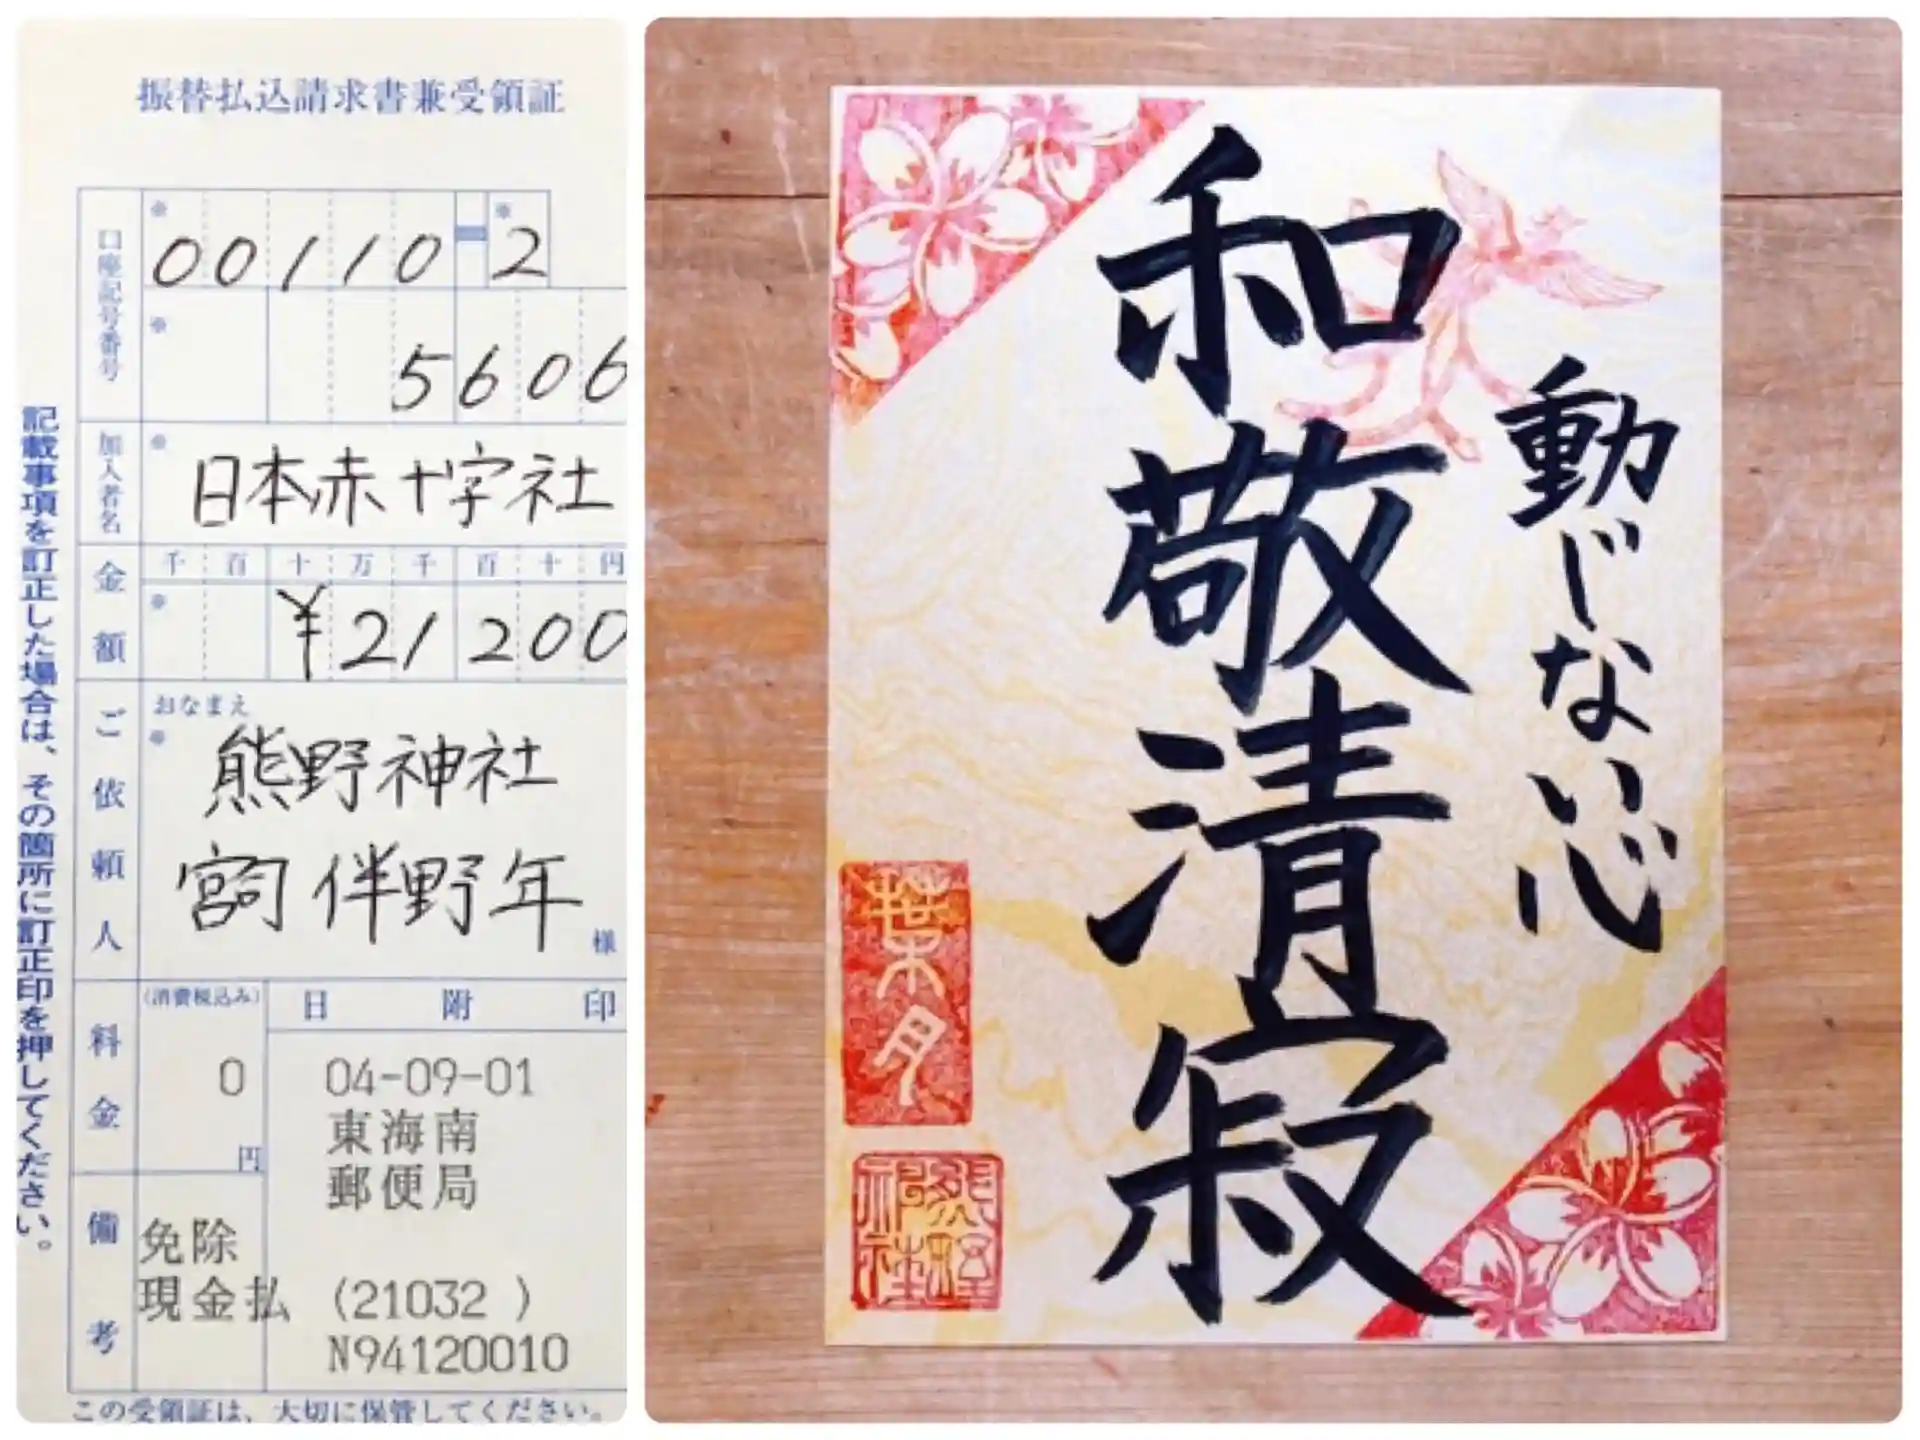 振替払込請求書兼受領証
口座記号番号
※ 00110 ※ 2
※ 5606
加入者名
※ 日本赤十字社
金額
千 百 十 万 千 百 十 円
※ ¥21200
ご依頼人
おなまえ
※ 熊野神社
宮司 伴野年
様
料金
(消費税込み)
0
円
日附印
04-09-01
東海南
郵便局
備考
免除
現金払 (21032 )
N94120010
この受領証は、大切に保管してください。
記載事項を訂正した場合は、その箇所に訂正印を押してください。
動じない心
和敬清寂
葉月
熊野
神社